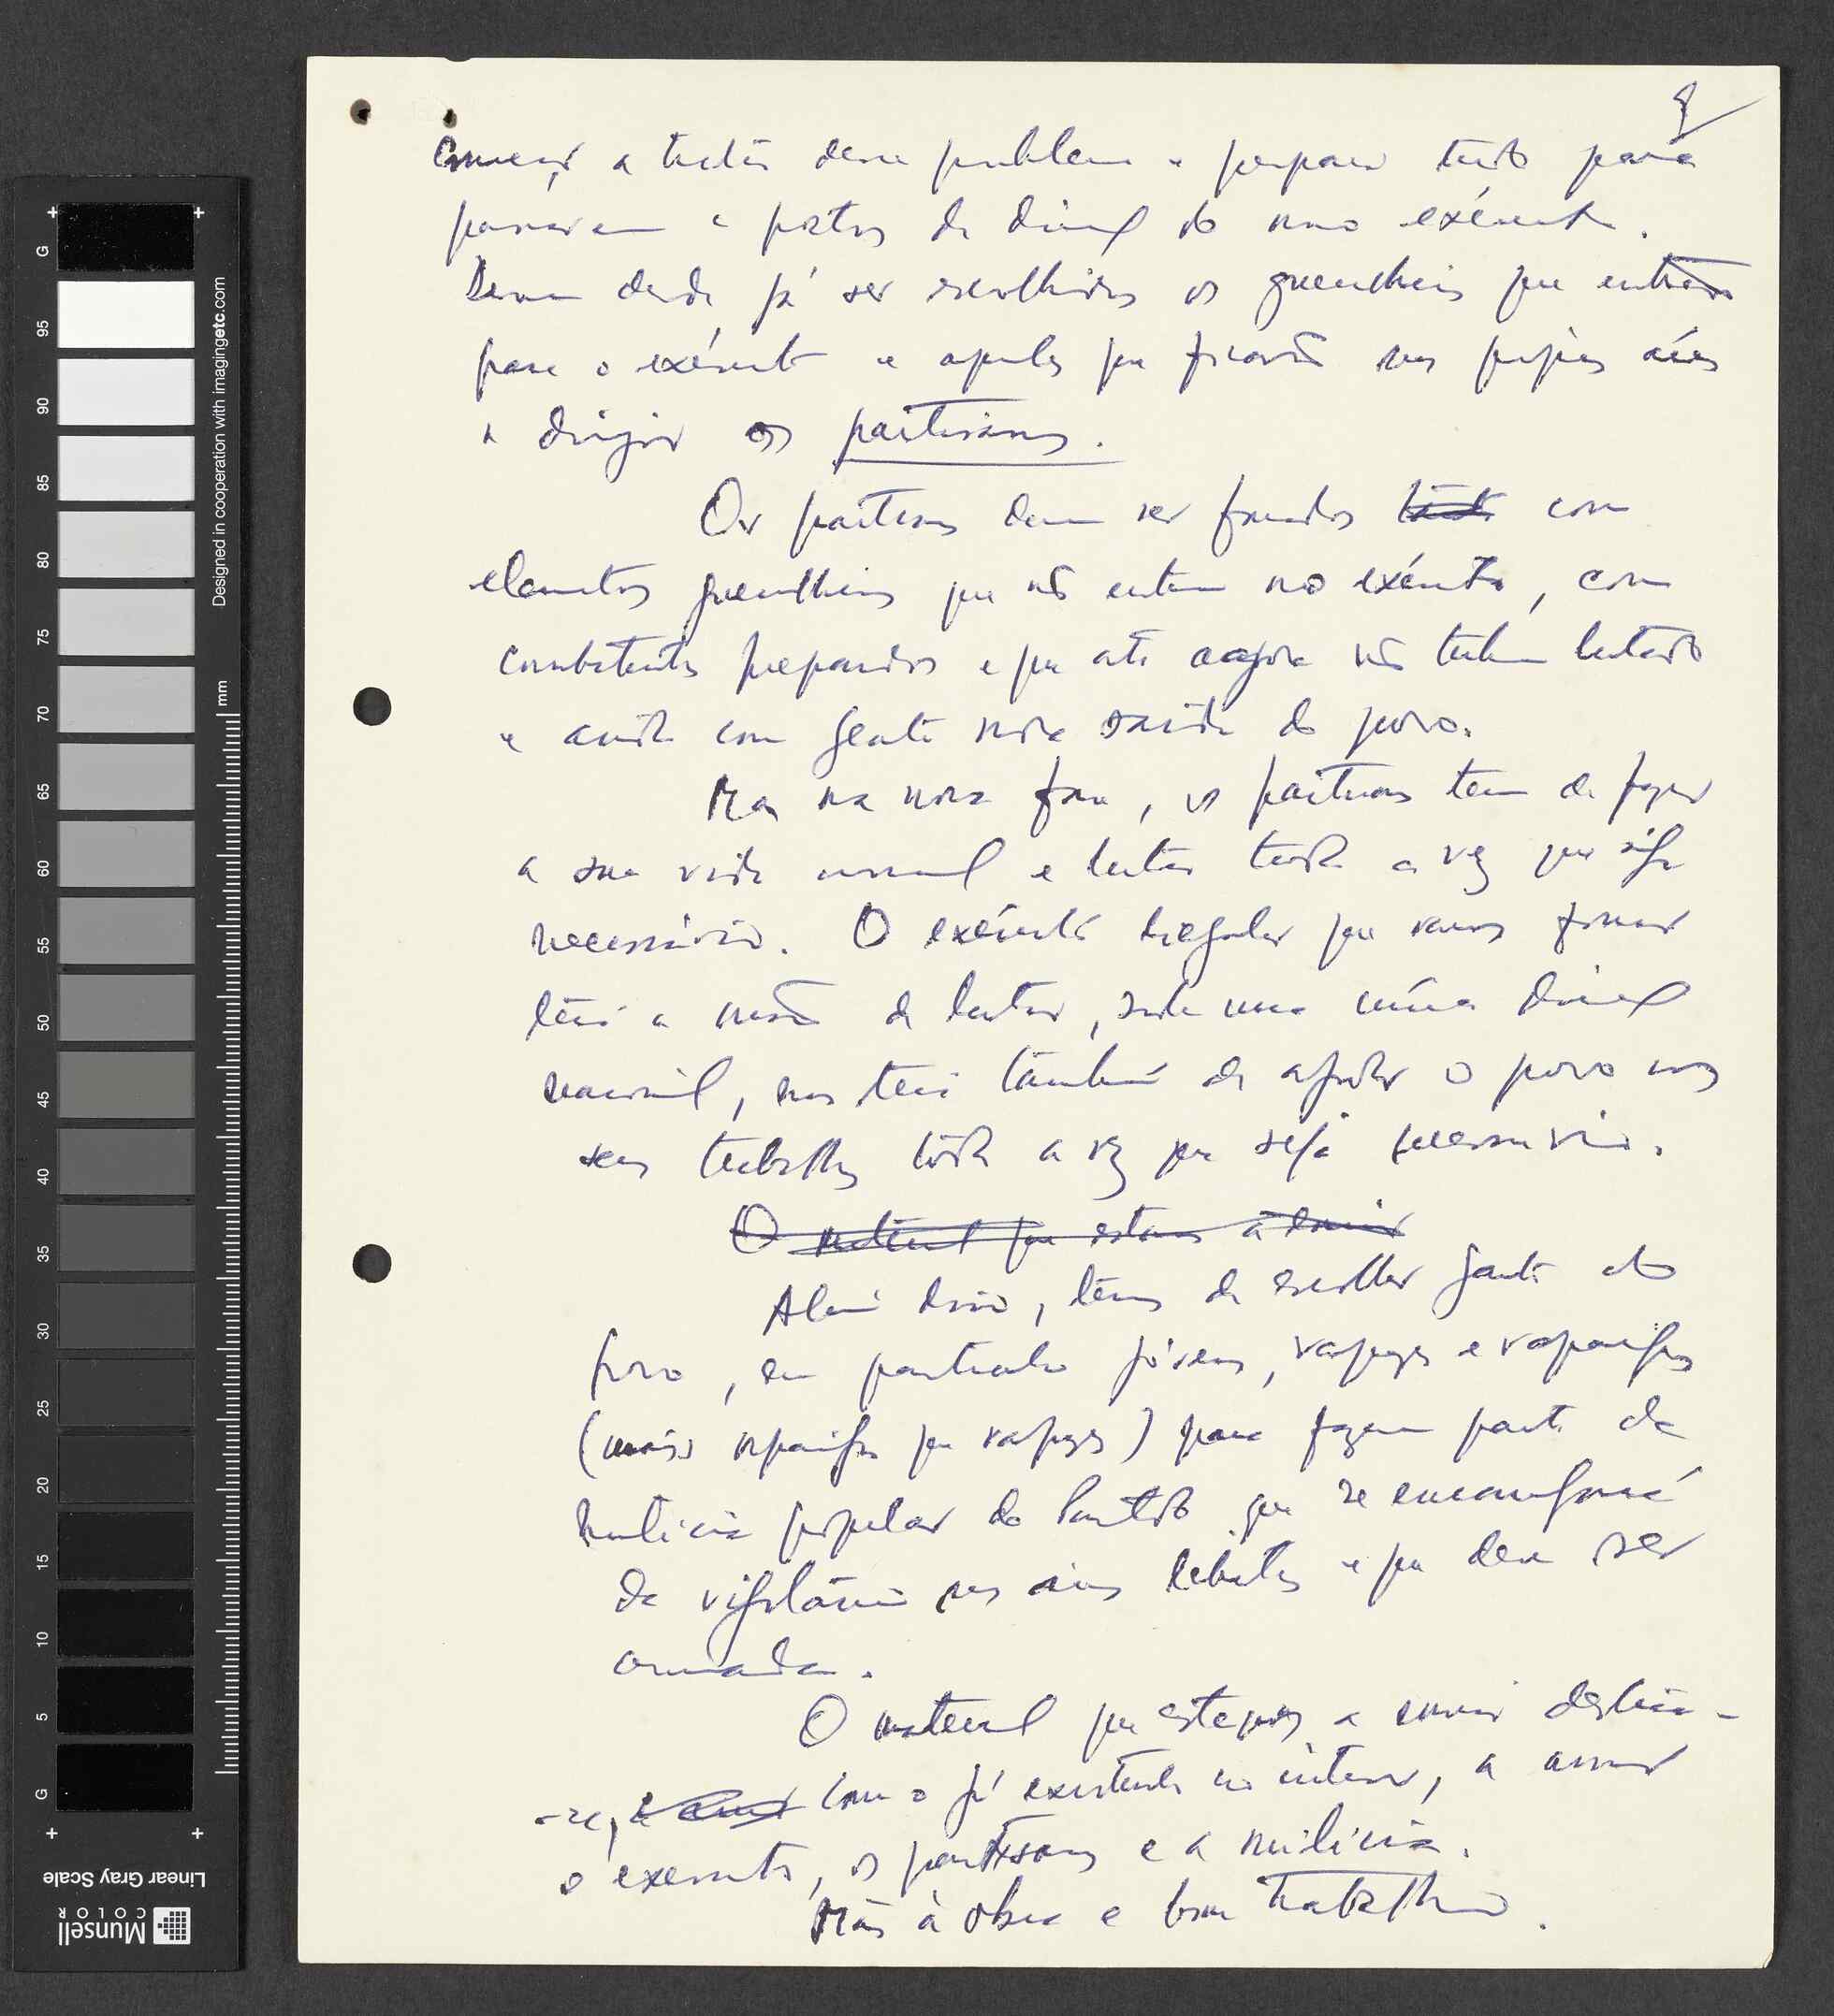 começar a tratar desse problema e preparar tudo para
passarem a portas da direcção do novo exército.
Devem desde já ser escolhidos os guerrilheiros que entrarão
para o exército e aqueles que ficarão nas próprias áreas
a dirigir os partisans.
Os partisans devem ser formados com
elementos guerrilheiros que não entrem no exército, com
combatentes preparados e que até agora não tenham lutado
e ainda com gente nova saída do povo.
Mas na nova fase, os partisans tem de fazer
a sua vida normal e lutar toda a vez que seja
necessário. O exército regular que vamos formar
terá a missão de lutar, sob uma única direcção
nacional, mas terá também de ajudar o povo nos
seus trabalhos toda a vez que seja necessário.
O material que estamos a enviar
Além disso, temos de escolher gente do
povo, em particular jóvens, rapazes e raparigas
(mais raparigas que rapazes) para fazerem parte da
milicia popular do Partido que se encarregará
da vigilância nas áreas libertas e que deve ser
armada.
O material que estamos a enviar destina-
-se, com o já existente no interior, a armar
o exercito, os partisans e a milicia.
Mãos à obra e bom trabalho.
G 95 90 85 80 75 70 65 60 55 50 45 40 35 30 25 20 15 10 5 G
mm
Designed in cooperation with imagingetc.com
Linear Gray Scale
Munsell
COLOR